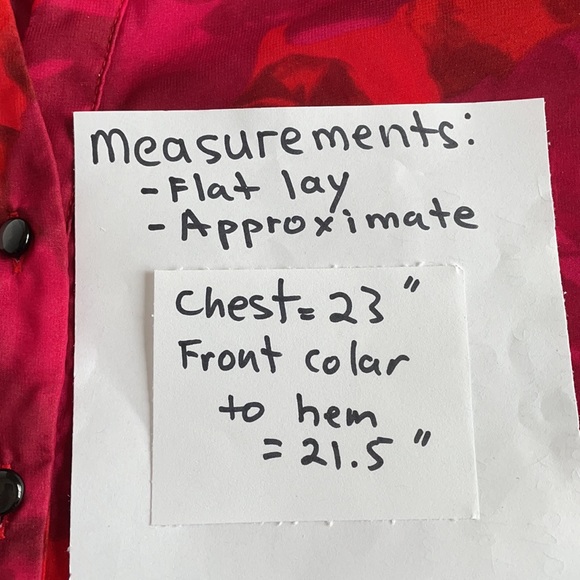 measurements:
- Flat lay
- Approximate
Chest = 23"
Front colar
to hem
= 21.5"